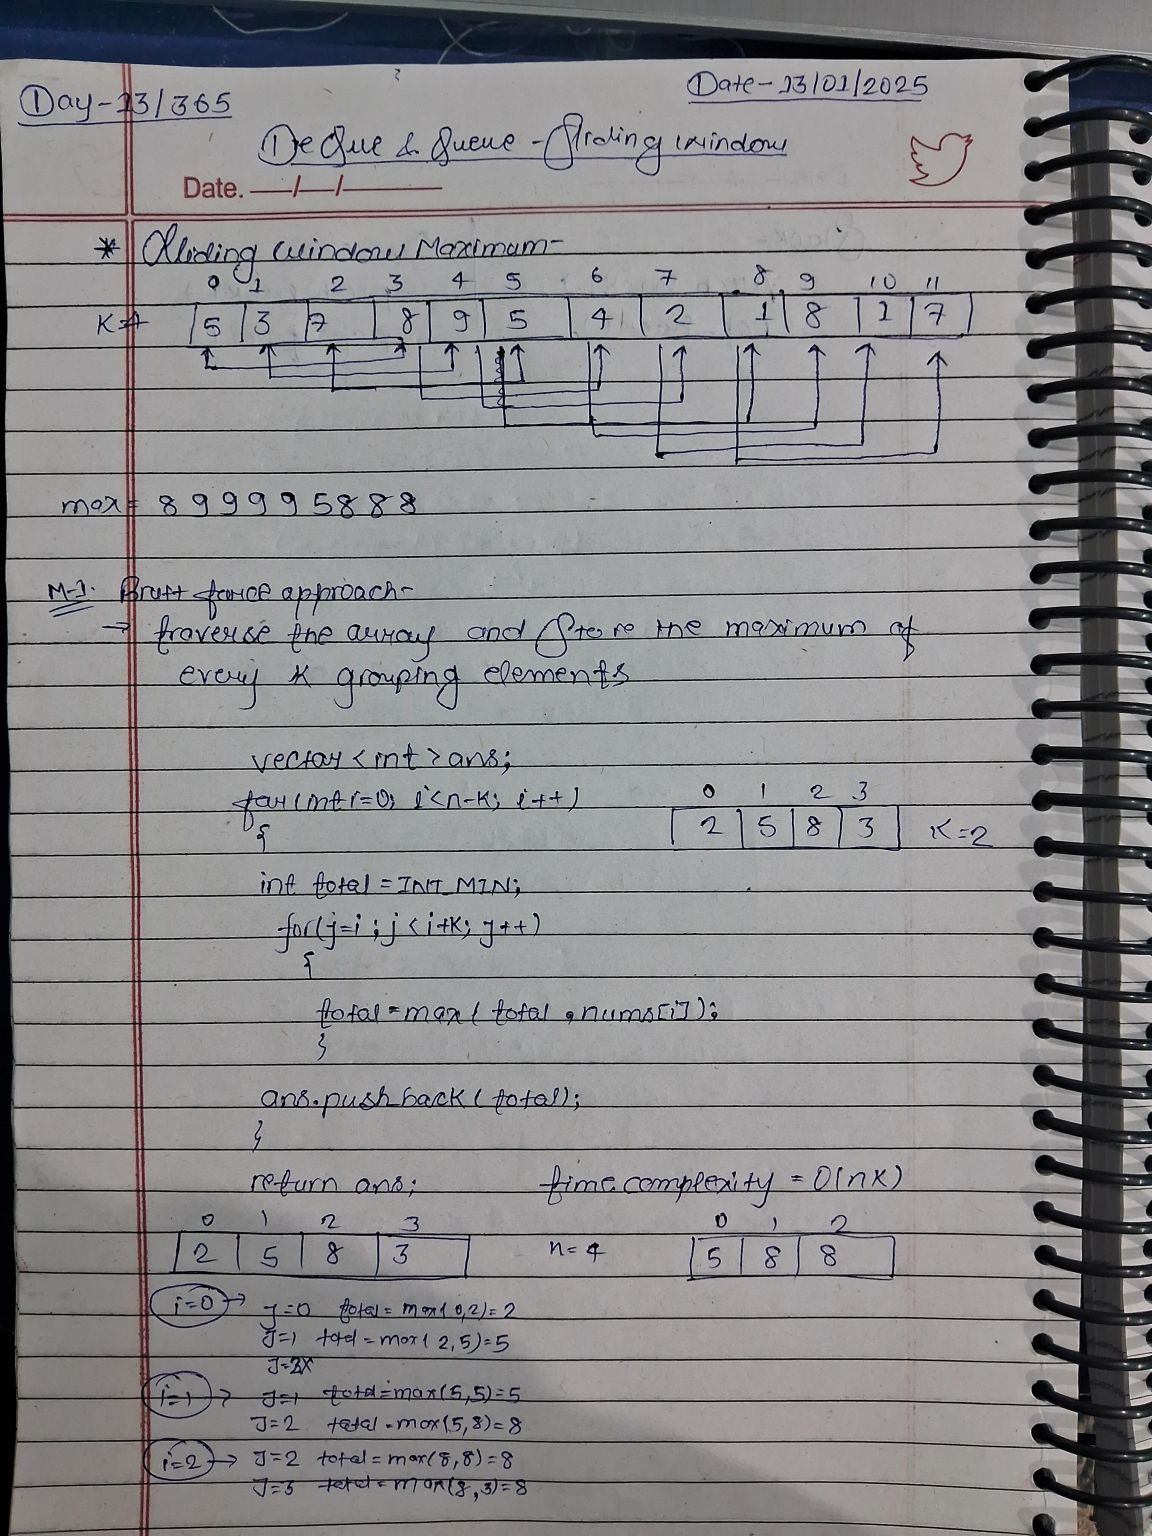 Day-13/365
Date-13/01/2025
DeQue & Queue - Sliding window
Date. —/—/———
* Sliding window Maximum-
0 1 2 3 4 5 6 7 8 9 10 11
K=4 5 3 7 8 9 5 4 2 1 8 1 7
max= 8 9 9 9 9 5 8 8 8
M-1. Brutt force approach-
→ traverse the array and Store the maximum of
every K grouping elements
vector<int>ans;
for(int i=0; i<n-K; i++)
0 1 2 3
{
2 5 8 3 K=2
int total=INT_MIN;
for(j=i; j<i+K; j++)
{
total=max( total, nums[i]);
}
ans.pushback( total);
}
return ans; time complexity = O(nK)
0 1 2 3 0 1 2
2 5 8 3 n=4 5 8 8
i=0 → j=0 total= max(0,2)=2
J=1 total=max(2,5)=5
J=2x
i=1 → J=1 total=max(5,5)=5
J=2 total=max(5,8)=8
i=2 → J=2 total=max(8,8)=8
J=3 total=max(8,3)=8